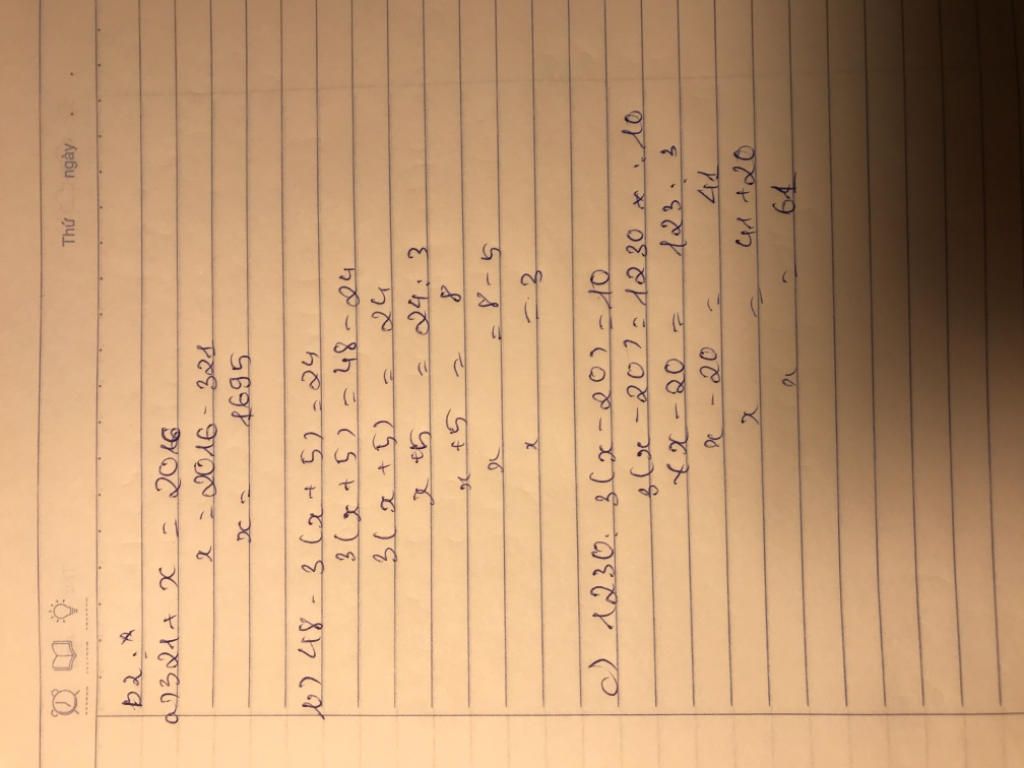 Thứ ngày
b2.
a) 321 + x = 2016
x = 2016 - 321
x = 1695
b) 48 - 3(x + 5) = 24
3(x + 5) = 48 - 24
3(x + 5) = 24
x + 5 = 24 : 3
x + 5 = 8
x = 8 - 5
x = 3
c) 1230 : 3(x - 20) = 10
3(x - 20) = 1230 : 10
x - 20 = 123 : 3
x - 20 = 41
x = 41 + 20
x = 61